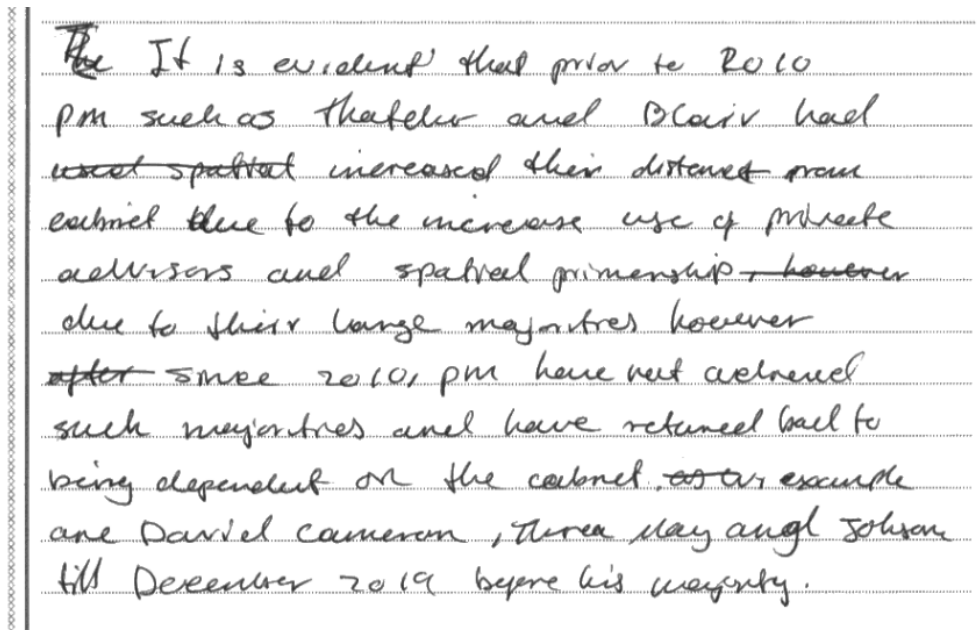 The It is evident that prior to 2010
pm such as Thatcher and Blair had
used spatial increased their distance from
cabinet due to the increase use of private
advisors and spatial primership, however
due to their large majoritres however
after since 2010, pm have not achieved
such majoritres and have returned back to
being dependent on the cabinet. as as example
are David Cameron, Threa May and Johson
till December 2019 before his majority.